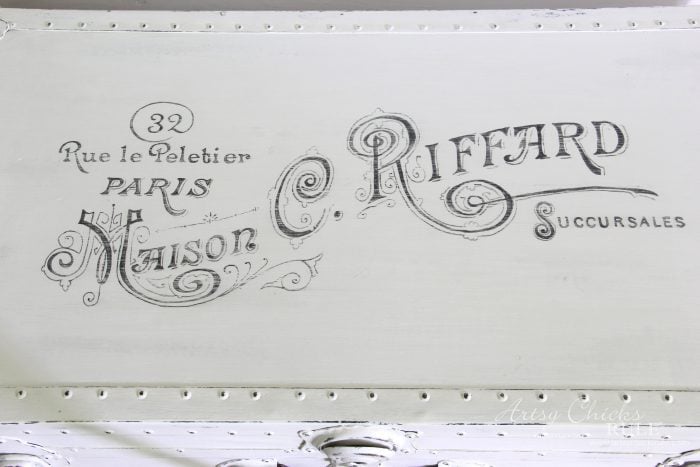 32
Rue le Peletier
PARIS
MAISON C. RIFFARD
SUCCURSALES
Artsy Chicks
RULE